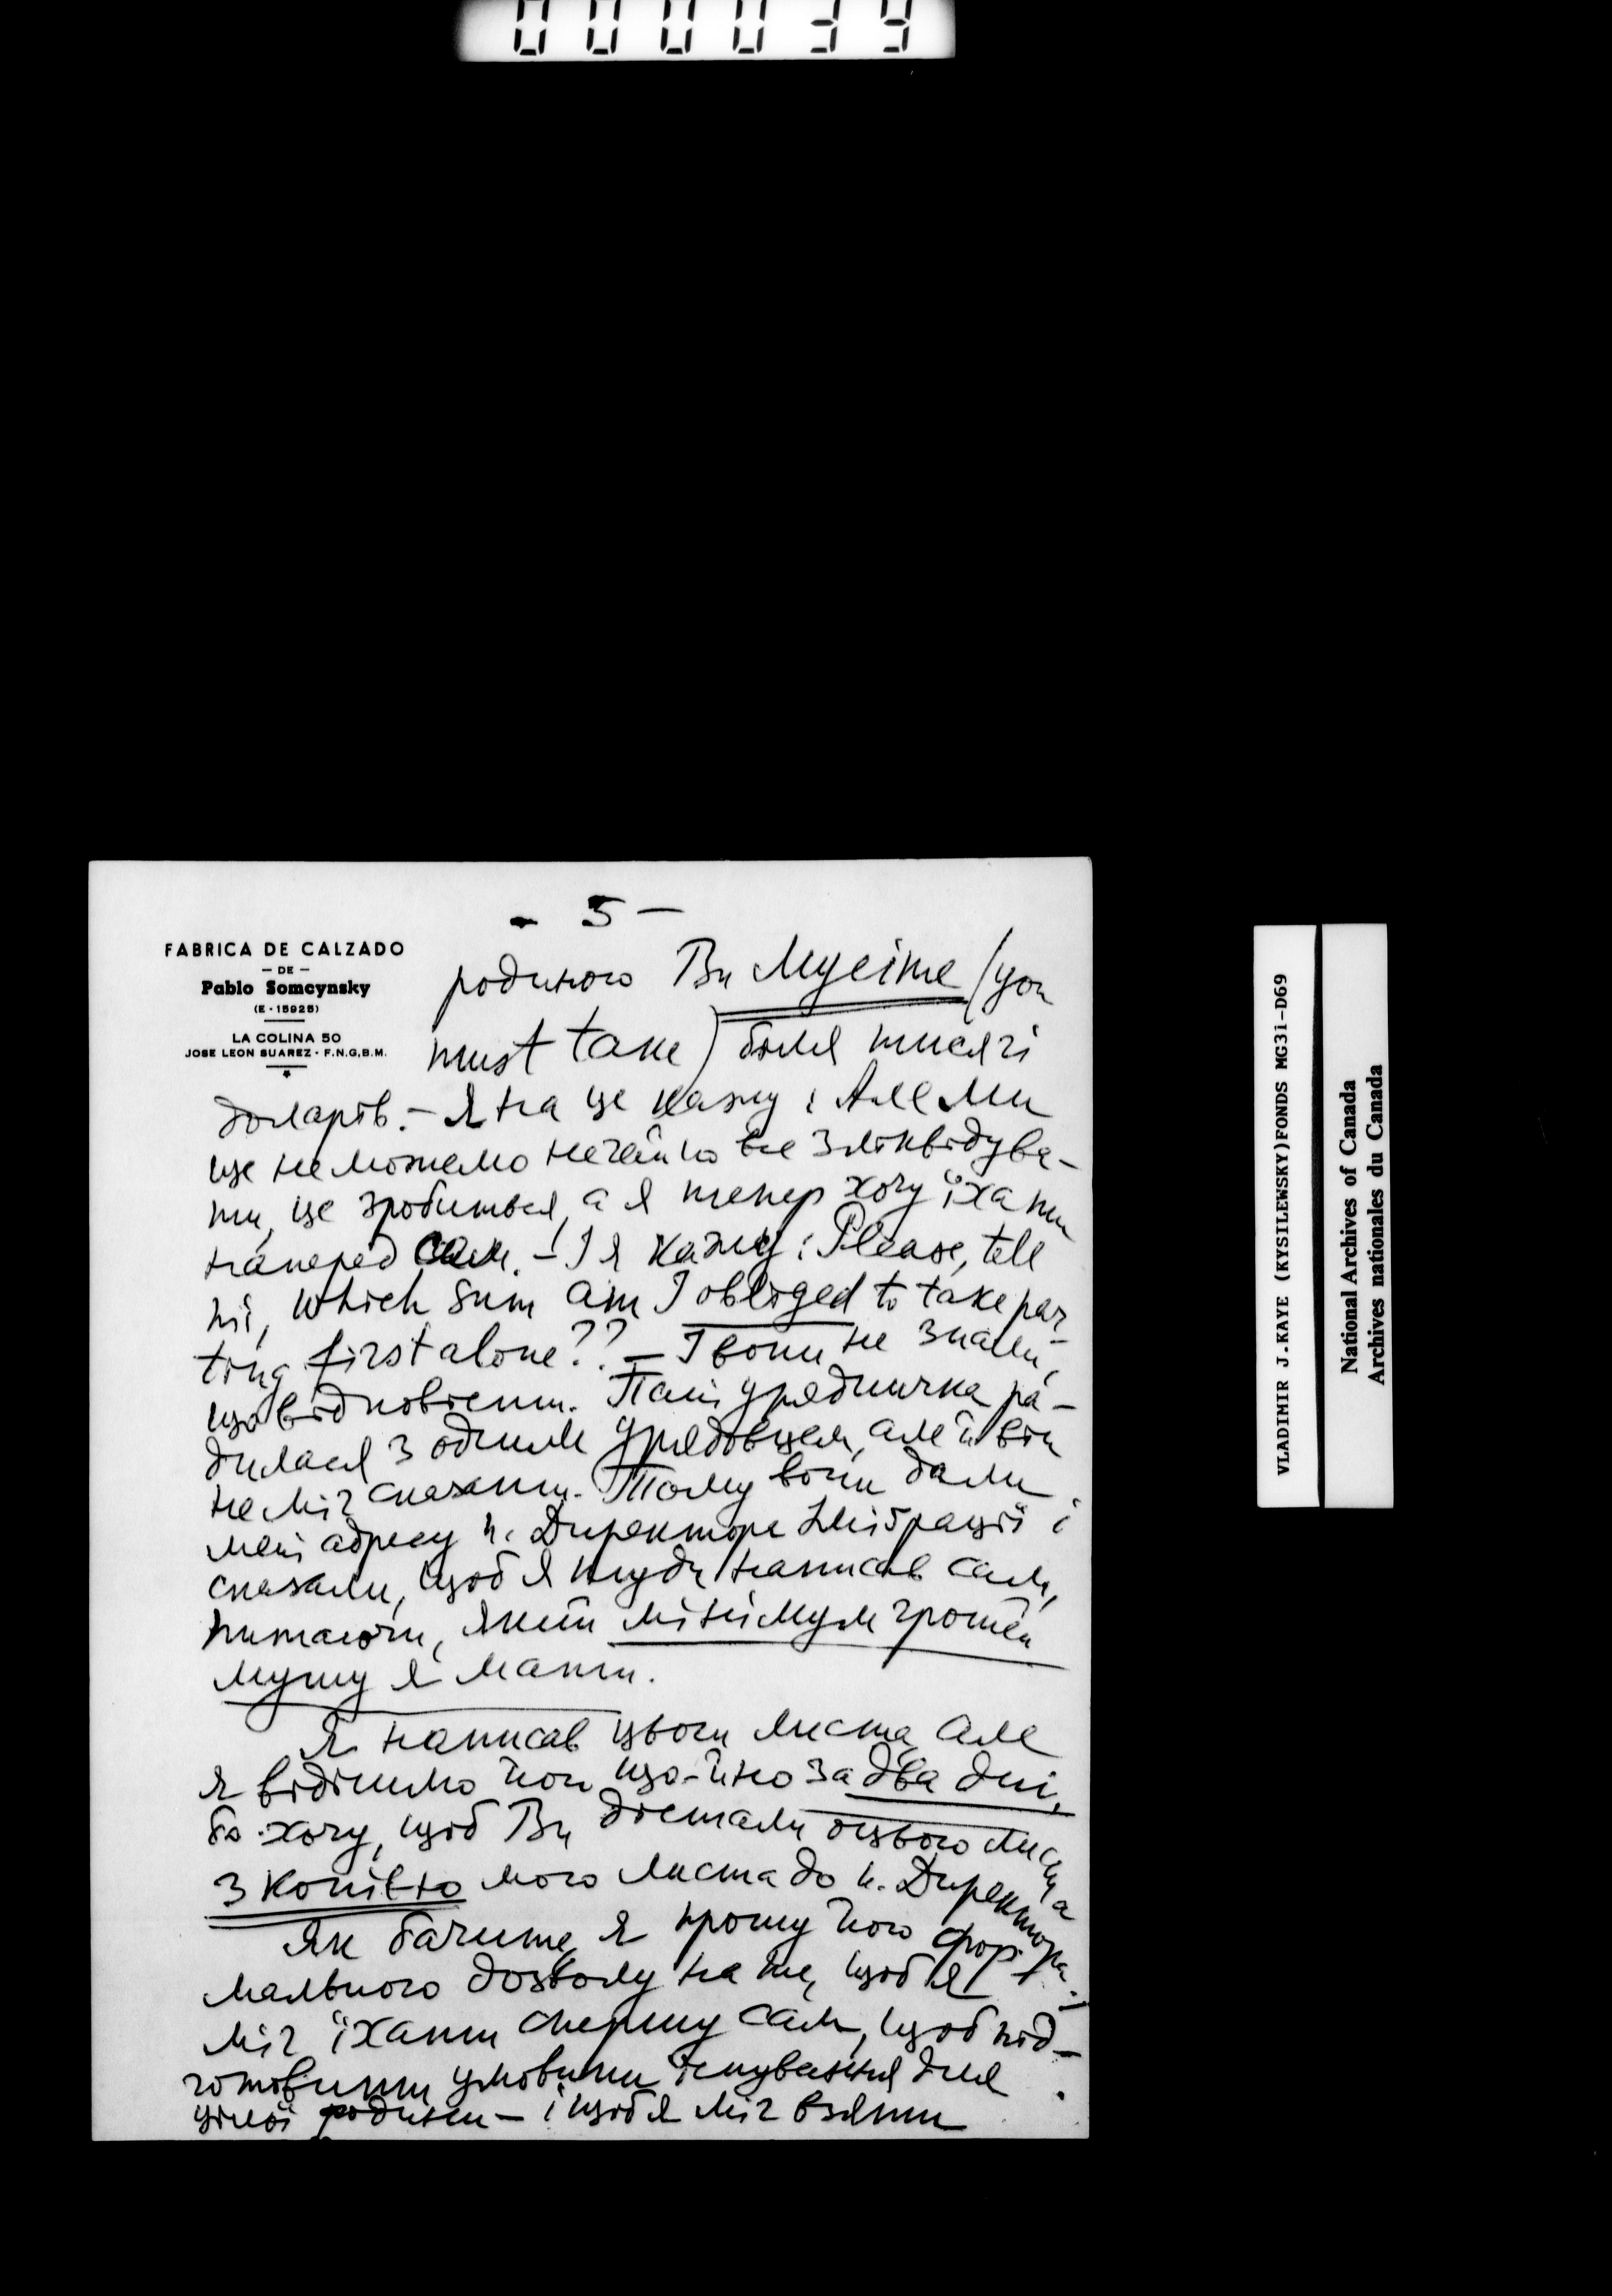 000039
- 5 -
FABRICA DE CALZADO
- DE -
Pablo Somcynsky
(E - 15925)
LA COLINA 50
JOSE LEON SUAREZ - F.N.G.B.M.
родиною Ви мусіте (you
must take) біля тисячі
доларів. - Я на це кажу: Але ми
ще не можемо негайно все зліквідува-
ти, це зробиться, а я тепер хочу їхати
наперед сам. - І я кажу: Please, tell
mi, which sum am I obliged to take par-
ting first alone?? - І вони не знали,
що відповісти. Пані урядничка ра-
дилася з одним урядовцем, але й він
не міг сказати. Тому вони дали
мені адресу п. Директора Іміграції і
сказали, щоб я туди написав сам,
питаючи, який мінімум грошей
мушу я мати.
Я написав цього листа, але
я відішлю його що-йно за два дні,
бо хочу, щоб Ви дістали оцього листа
з копією мого листа до п. Директора.
Як бачите, я прошу його фор-
мального дозволу на те, щоб я
міг їхати спершу сам, щоб під-
готовити умовини існування для
цілої родини - і щоб я міг взяти
VLADIMIR J.KAYE (KYSILEWSKY)FONDS MG31-D69
National Archives of Canada
Archives nationales du Canada